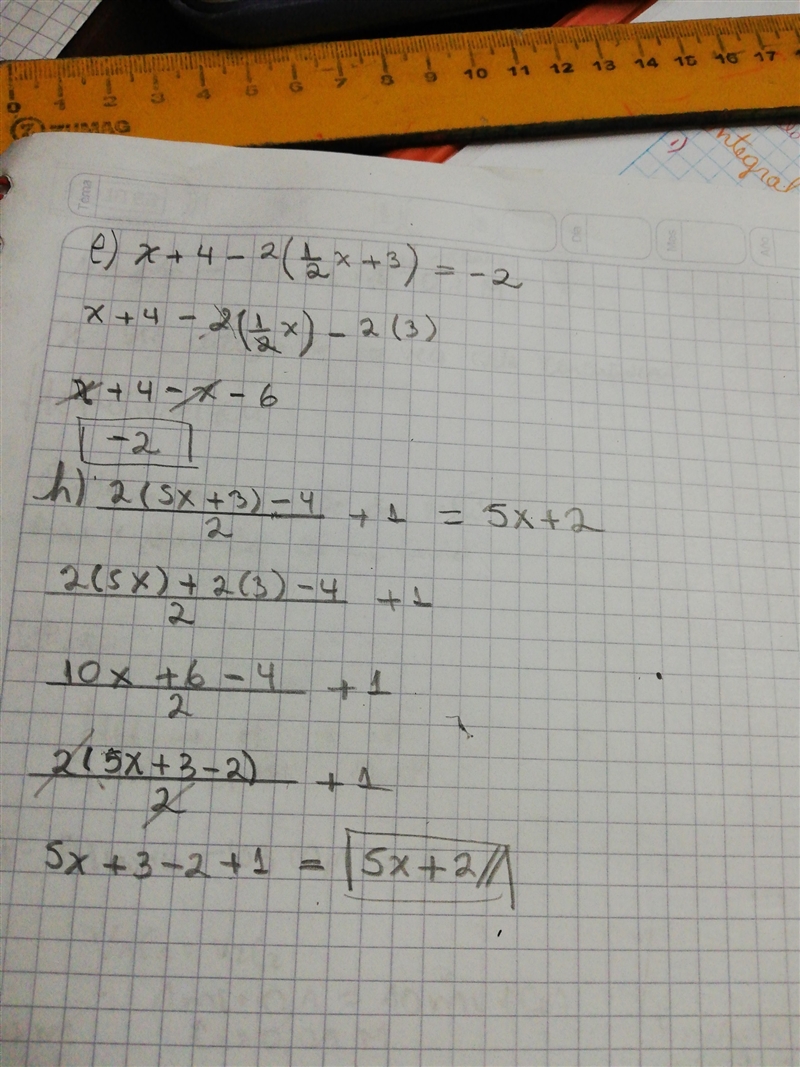 0 1 2 3 4 5 6 7 8 9 10 11 12 13 14 15 16 17
ZUMAG
1)
integral
Tema
Día
Mes
Año
e) x + 4 - 2(1/2 x + 3) = -2
x + 4 - 2(1/2 x) - 2(3)
x + 4 - x - 6
-2
h) 2(5x + 3) - 4 / 2 + 1 = 5x + 2
2(5x) + 2(3) - 4 / 2 + 1
10x + 6 - 4 / 2 + 1
2(5x + 3 - 2) / 2 + 1
5x + 3 - 2 + 1 = 5x + 2//